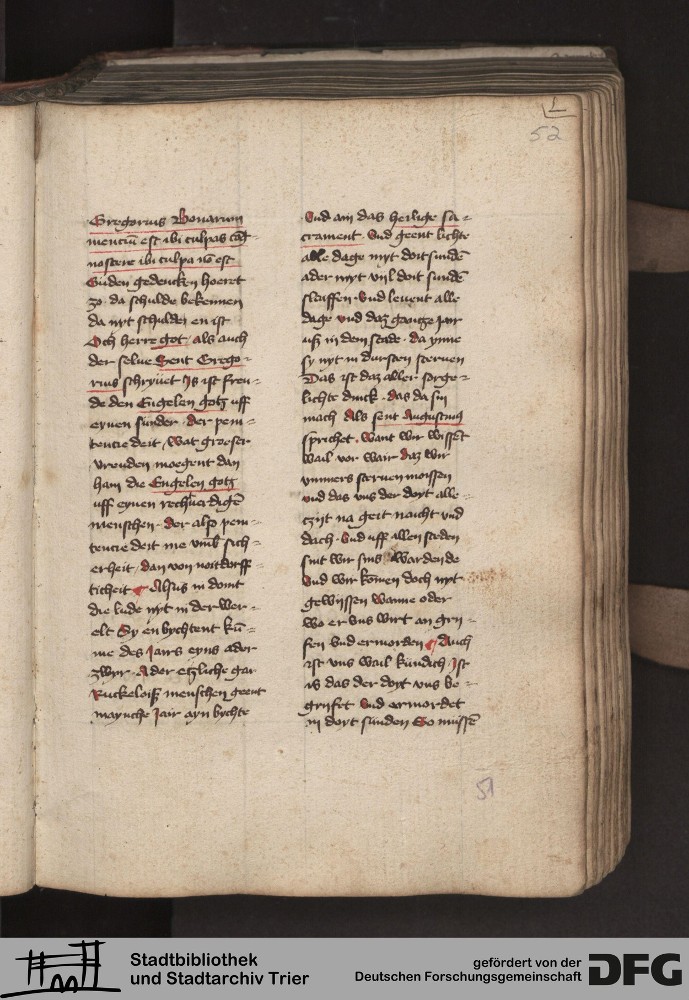 L
52
Gregorius Bonarum
menciu est ibi culpas
noscere ibi culpa nō est
Guden gedencken hoeret
zo da schulde bekennen
da nyt schulder en ist
Och herre got als auch
der selue Sent Grego-
rius schryuet Is ist freu-
de den Engelen gotz uff
eynen sunder der peni-
tencie deit, wat groeser
vreuden moegent dan
han die Engelen gotz
uff eynen rechtuerdigē
menschen. der also peni-
tencie deit me vmb sich-
erheit dan von noitdorff-
ticheit Alsus in doint
die lude nyt in der wer-
elt Sy en bychtent kū-
me des Jairs eyns ader
zwyr. Ader etzliche gar
Ruckeloisz menschen geent
maynche Jair ayn bychte
Vnd an das heilige sa-
crament. Vnd geent lichte
alle dage myt doitsundē
ader myt vyl doit sundē
slaiffen. Vnd leuent alle
dage vnd daz gantze Jair
usz in dem stade. da ynne
sy nyt in dursten steruen
Das ist daz aller sorge-
lichste dinck. das da sin
mach Als sent Augustinus
sprichet. Want wir wissēt
wail vor wair daz wir
ummers steruen moissen
vnd das vns der doyt alle
zijt na geit naicht vnd
dach. Vnd uff allen steden
sint wir sins wardende
Vnd wir könen doch nyt
gewijssen wanne oder
wo er vns wirt an gry-
fen Vnd ermorden Auch
ist vns wail kundich, ist
is das der doyt vns be-
grifet Vnd ermordet
in doyt sunden So mussē
51
Stadtbibliothek
und Stadtarchiv Trier
gefördert von der
Deutschen Forschungsgemeinschaft
DFG